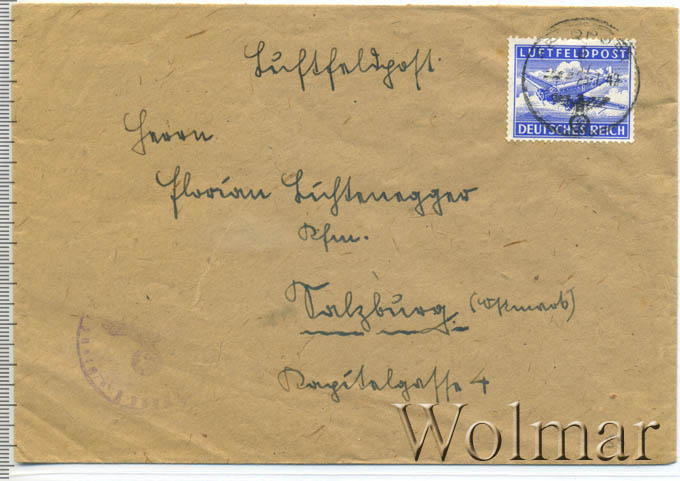 Luftfeldpost.
LUFTFELDPOST
DEUTSCHES REICH
Herrn
Florian Lichtenegger
Kfm.
Salzburg. (Ostmark)
Kapitelgasse 4
Wolmar